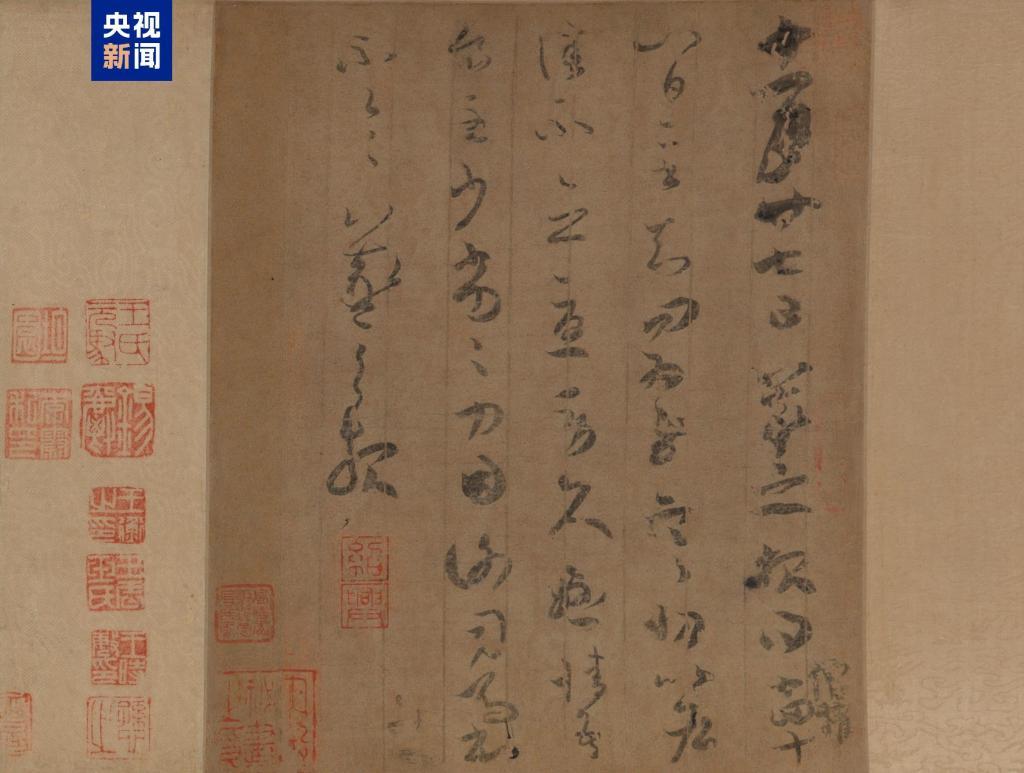 央视
新闻
十一月廿七日羲之報得十四十
八日二書知問為慰寒切比各
佳不念憂勞久懸情吾
食至少劣劣力因謝司馬書
不一一羲之報
紹興
錫爵
王衡之印